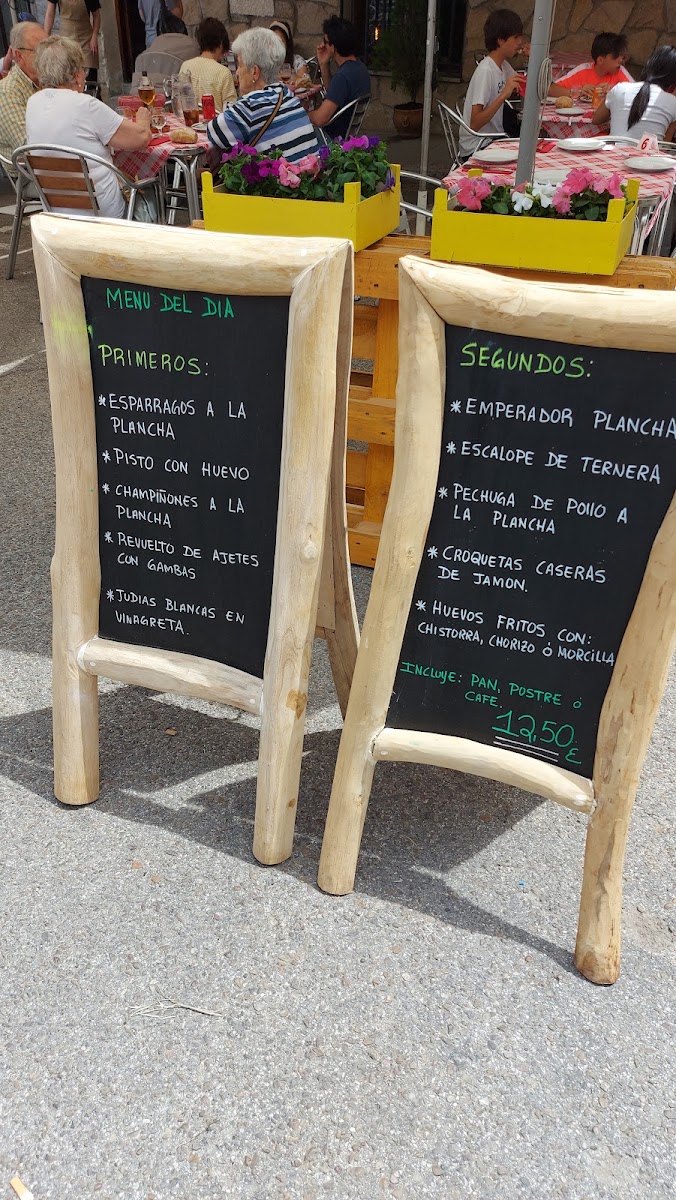 MENU DEL DIA
PRIMEROS:
* ESPARRAGOS A LA
PLANCHA
* PISTO CON HUEVO
* CHAMPIÑONES A LA
PLANCHA
* REVUELTO DE AJETES
CON GAMBAS
* JUDIAS BLANCAS EN
VINAGRETA.
SEGUNDOS:
* EMPERADOR PLANCHA
* ESCALOPE DE TERNERA
* PECHUGA DE POLLO A
LA PLANCHA
* CROQUETAS CASERAS
DE JAMON.
* HUEVOS FRITOS CON:
CHISTORRA, CHORIZO Ó MORCILLA
INCLUYE: PAN, POSTRE Ó
CAFE.
12,50€
6